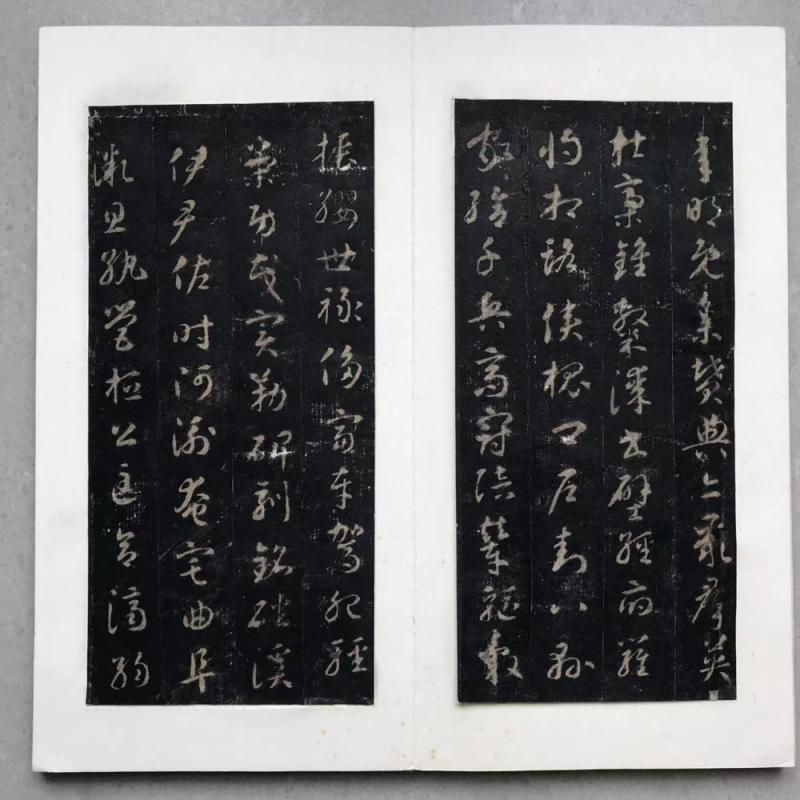 承明既集墳典亦聚群英
杜稾鍾隸漆書壁經府羅
將相路俠槐卿戶封八縣
家給千兵高冠陪輦驅轂
振纓世祿侈富車駕肥輕
策功茂實勒碑刻銘磻溪
伊尹佐時阿衡奄宅曲阜
微旦孰營桓公匡合濟弱